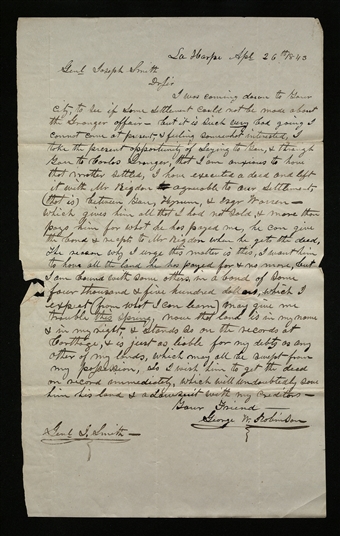 La Harpe Apl 26th 1843
Genl Joseph Smith
Dr Sir
I was coming down to your
city, to see if some settlement could not be made about
the Granger affair - but it is such very bad going I
cannot come at present, & feeling somewhat interested, I
take the present opportunity of saying to you, & through
you to Carlos Granger, that I am anxious to have
that matter settled, I have executed a deed and left
it with Mr Rigdon agreeable to our settlement
(that is) between you, Hyrum, & Esqr Warren -
which gives him all that I had not sold, & more than
pays him for what he has payed me, he can give
the bond & recpts to Mr Rigdon when he gets the deed,
The reason why I urge this matter is this, I want him
to have all the land he has payed for & no more, but
I am bound with some others, in a bond of some
four thousand & five hundred dollars, which I
expect (from what I can learn) may give me
trouble this spring, now that land is in my name
& in my right, & stands so on the records at
Carthage, & is just as liable for my debts as any
other of my lands, which may all be swept from
my possession, so I wish him to get the deed
on record immediately, which will undoubtedly save
him his land & a Lawsuit with my creditors -
Your Friend
George W. Robinson
Genl J. Smith -